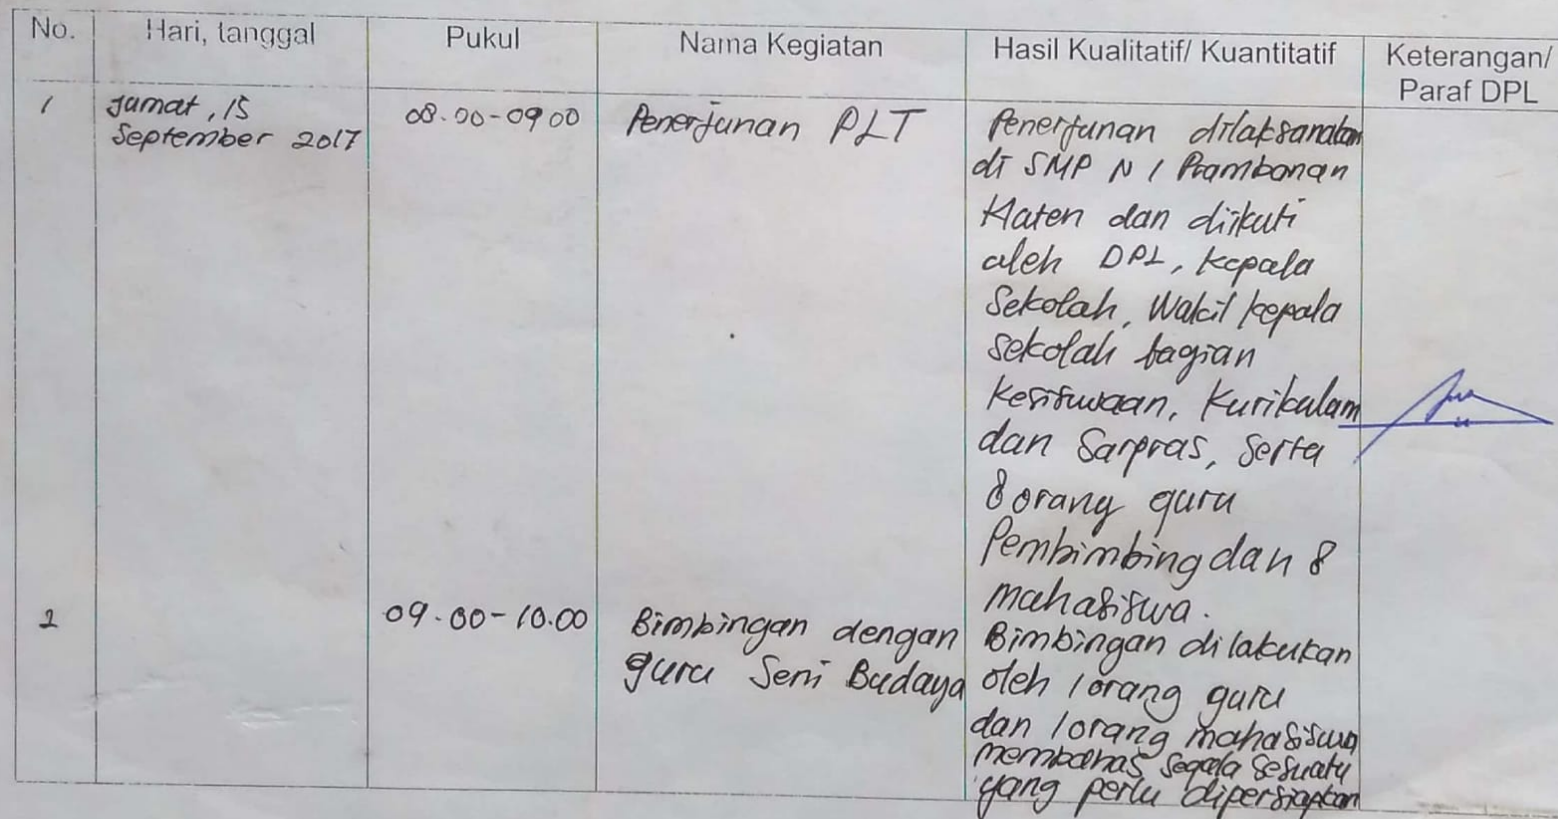 No.
Hari, tanggal
Pukul
Nama Kegiatan
Hasil Kualitatif/ Kuantitatif
Keterangan/
Paraf DPL
1
Jumat, 15
September 2017
08.00-09 00
Penerjunan PLT
Penerjunan dilaksanakan
di SMP N 1 Prambanan
Klaten dan diikuti
oleh DPL, kepala
Sekolah, Wakil kepala
sekolah bagian
Kesiswaan, Kurikulum
dan Sarpras, Serta
8 orang guru
Pembimbing dan 8
mahasiswa.
2
09.00-10.00
Bimbingan dengan
guru Seni Budaya
Bimbingan dilakukan
oleh 1 orang guru
dan 1 orang mahasiswa
membahas segala sesuatu
yang perlu dipersiapkan